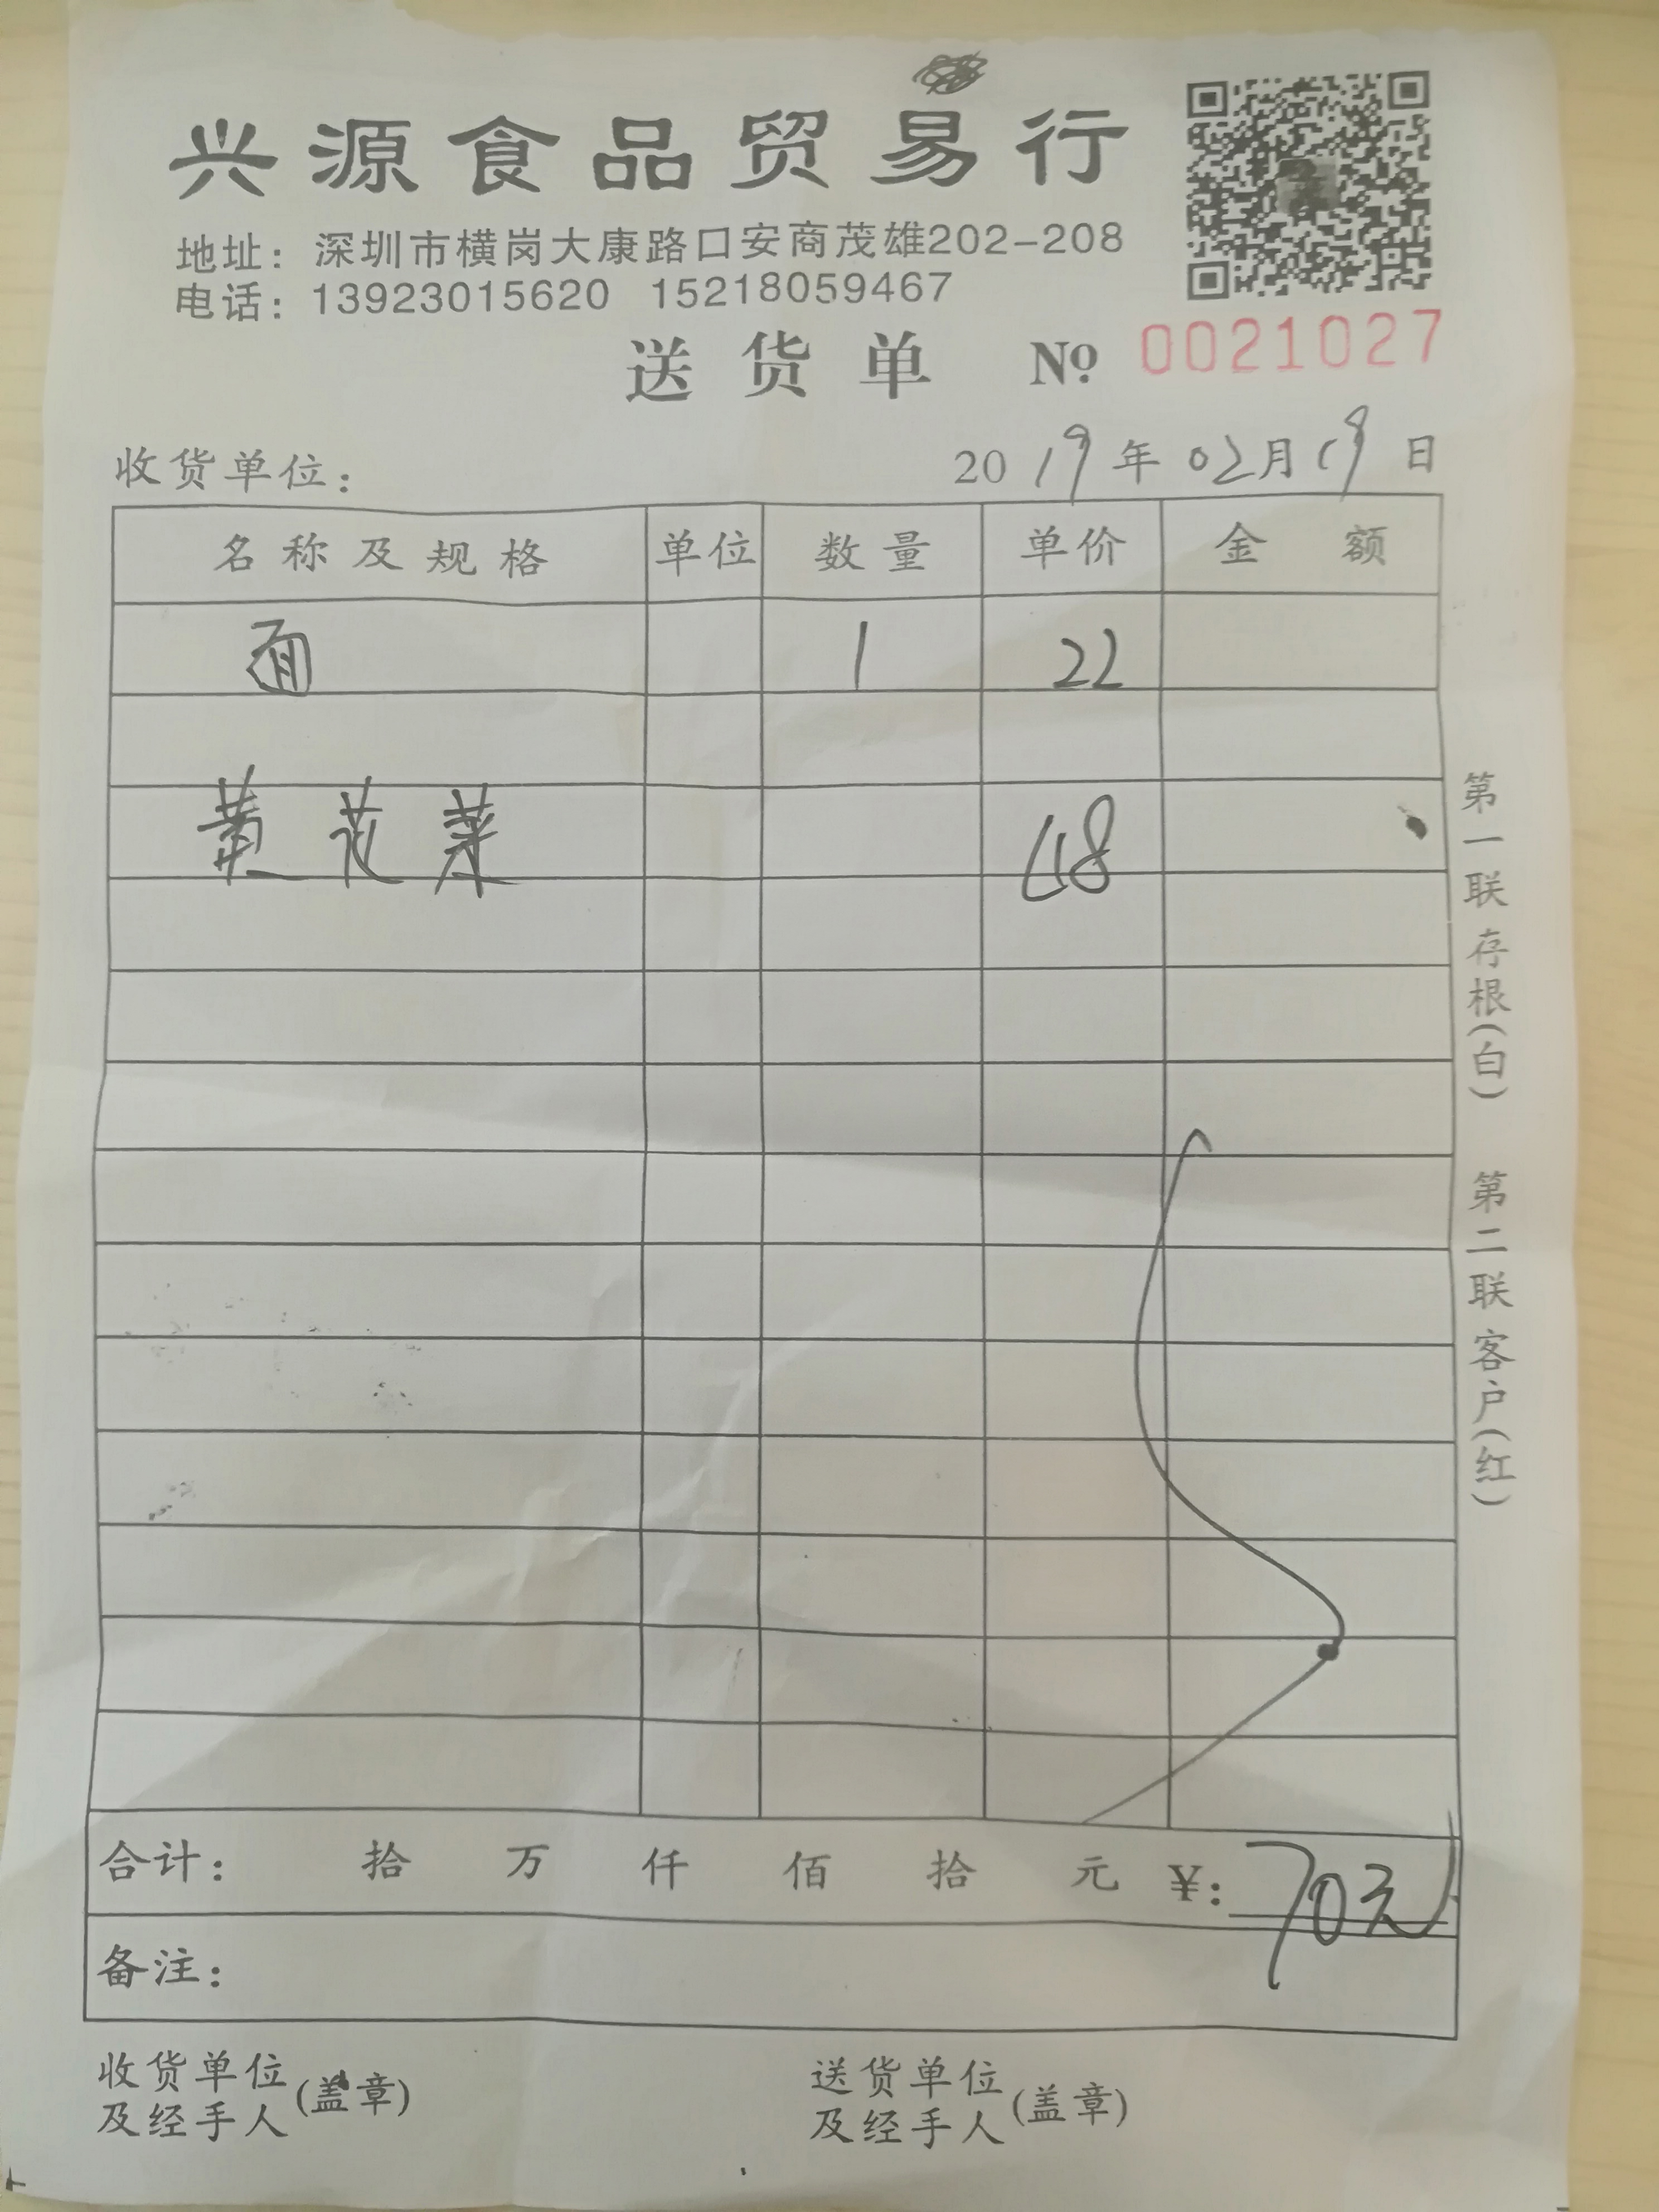 兴源食品贸易行
地址：深圳市横岗大康路口安商茂雄202-208
电话：13923015620 15218059467
送货单 № 0021027
收货单位： 2019年02月19日
名称及规格 单位 数量 单价 金额
面 1 22
黄花菜 48
合计： 拾 万 仟 佰 拾 元 ¥：70元
备注：
收货单位及经手人(盖章) 送货单位及经手人(盖章)
第一联存根(白) 第二联客户(红)